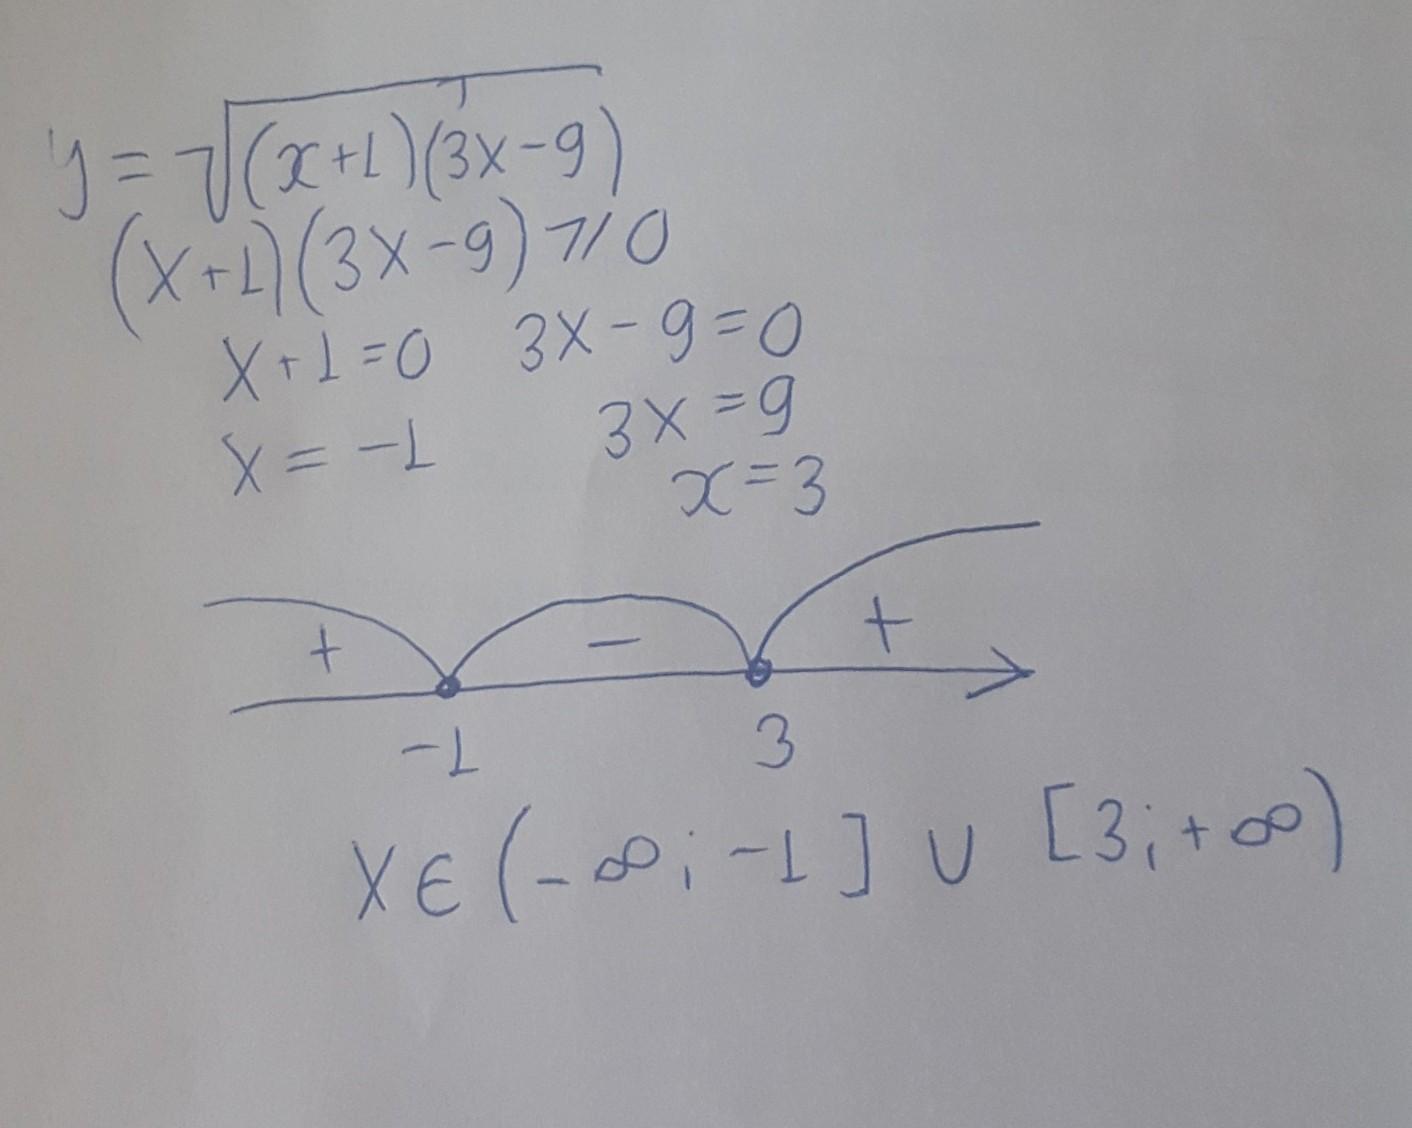 y = √(x+1)(3x-9)
(x+1)(3x-9) ⩾ 0
x+1=0 3x-9=0
x = -1 3x=9
x=3
+ - +
-1 3
x∈(-∞;-1] ∪ [3;+∞)